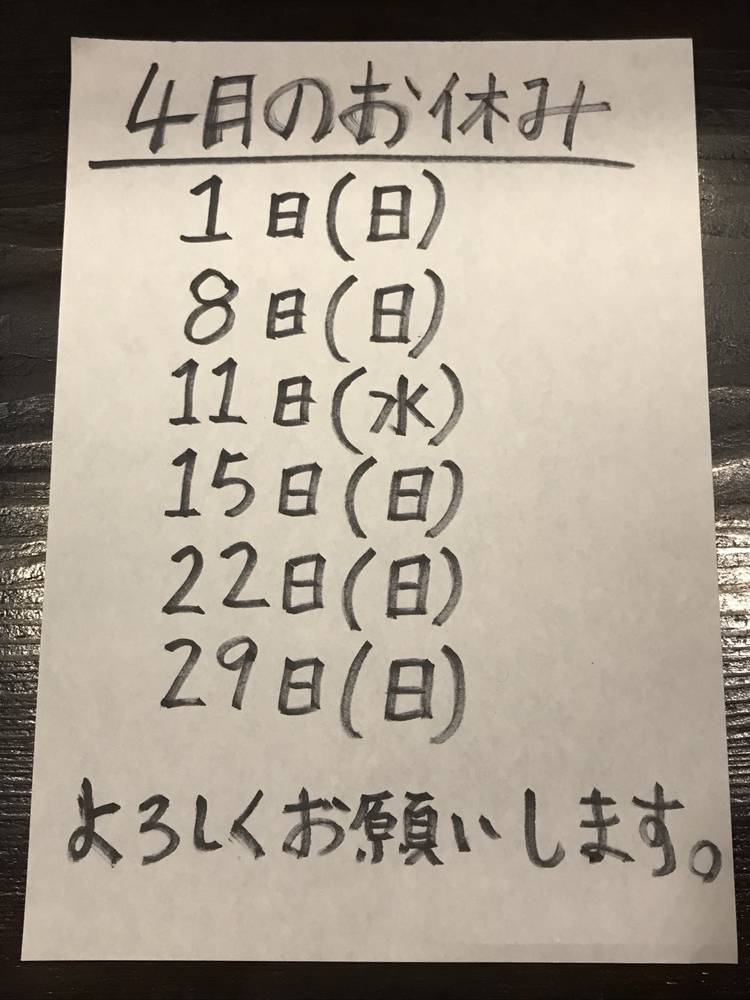 4月のお休み
1日(日)
8日(日)
11日(水)
15日(日)
22日(日)
29日(日)
よろしくお願いします。